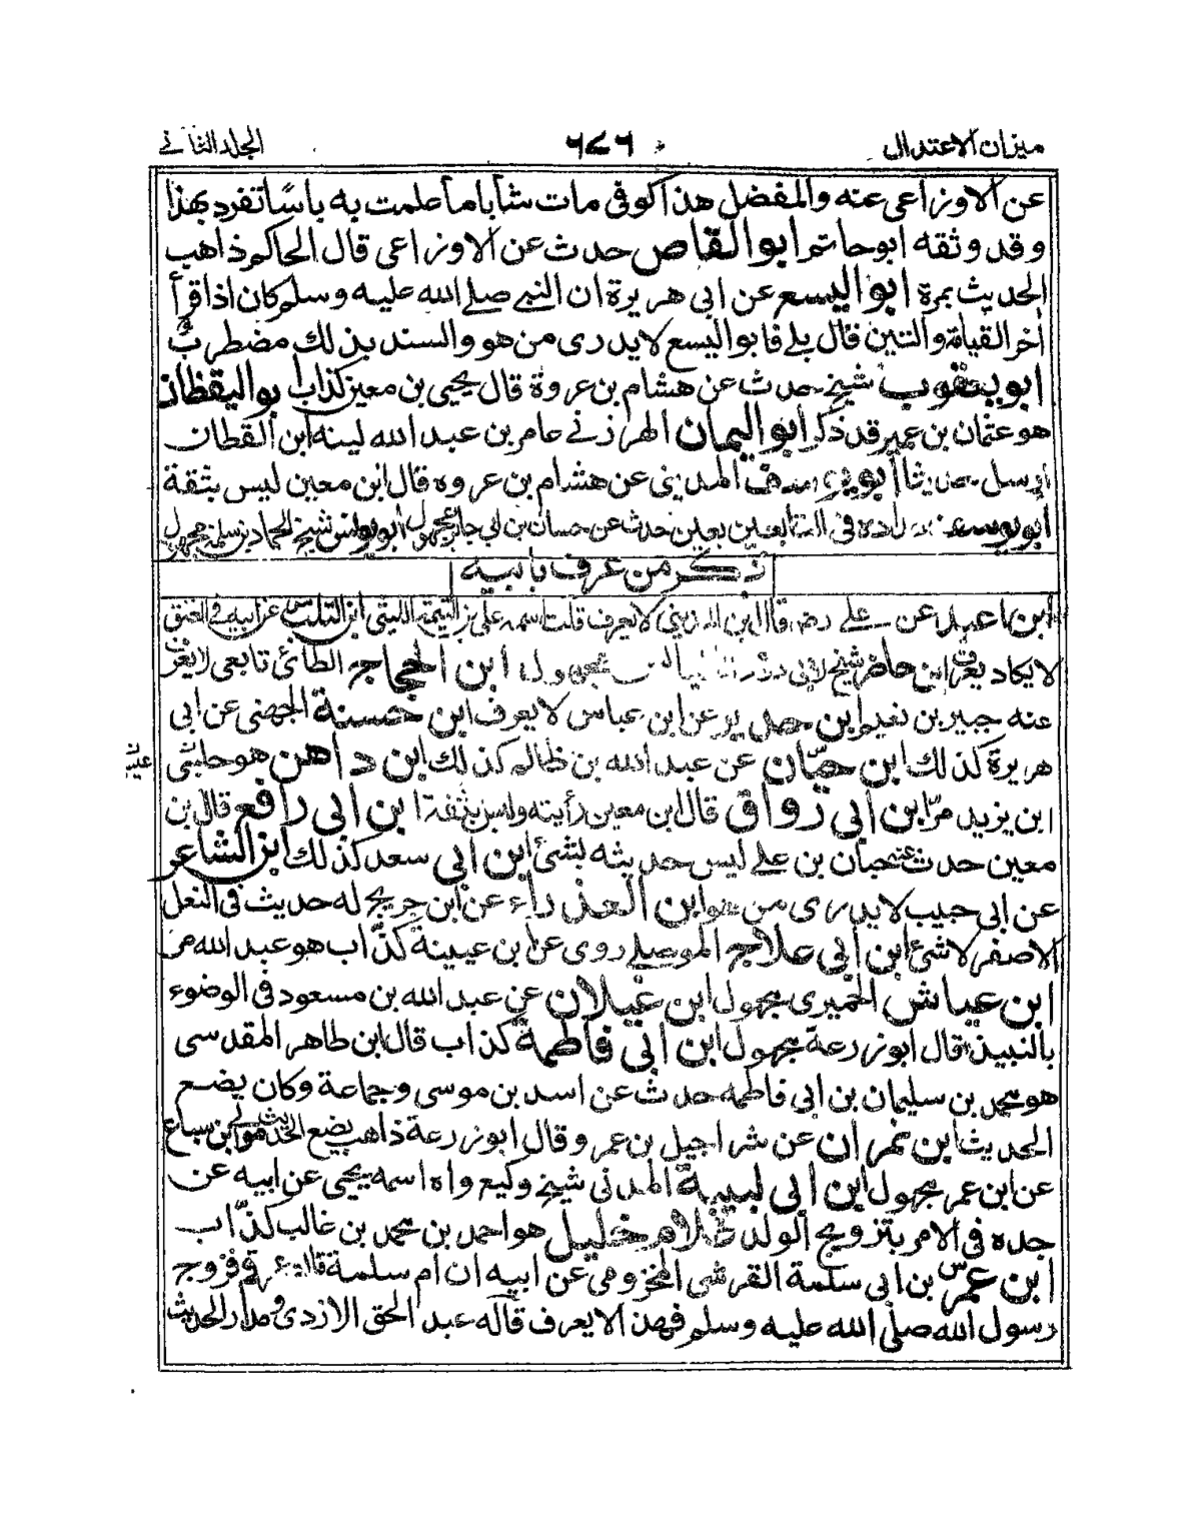 ميزان الاعتدال ٦٧٦ الجلد الثاني
عن الاوزاعى عنه والمفضل هذا كوفى مات شابا ما علمت به باسًا تفرد بهذا
وقد وثقه ابو حاتم ابو القاص حدث عن الاوزاعى قال الحاكم ذاهب
الحديث بمرة ابو اليسع عن ابى هريرة ان النبي صلے الله عليه وسلم كان اذا قرأ
أخر القيامة والتين قال بلے فابو اليسع لا يدرى من هو والسند بذلك مضطرب
ابو يعقوب شيخ حدث عن هشام بن عروة قال يحيى بن معين كذاب ابو اليقظان
هو عثمان بن عمير قد ذكر ابو اليمان الهوزنے عامر بن عبد الله لينه ابن القطان
ارسل حديثا ابو يوسف المدينى عن هشام بن عروه قال ابن معين ليس بثقة
ابو يوسف فى حدث عن حسان بن ابي جابر مجهول ابو يونس شيخ لحماد بن سلمة مجهول
ذكر من عرف بابيه
ابن عن علے رضه قال ابن المدينى لا يعرف قلت اسمه على الليثى ابن التلب عن ابيه فى العتق
لا يكاد يعرف ابن حاضر شيخ مجهول ابن الحجاجه الطائ تابعى لا يعرف
عنه جبير بن نعيم ابن حدير عن ابن عباس لا يعرف ابن حسنة الجهنى عن ابى
هريرة كذلك ابن حيّان عن عبد الله بن ظالم كذلك ابن داهن هو
ابن يزيد مرّ ابن ابى رواق قال ابن معين رأيته وليس بثقة ابن ابى رافع قال بن
معين حدث عنه حبان بن علے ليس حديثه بشئ ابن ابى سعد كذلك ابن الشاعر
عن ابى حبيب لا يدرى من هو ابن العذراء عن ابن جريج له حديث فى النعل
الاصفر لا شئ ابن ابى علاجه الموصلے روى عن ابن عيينة كذّاب هو عبد الله مر
ابن عياش الحميرى مجهول ابن غيلان عن عبد الله بن مسعود فى الوضوء
بالنبيذ قال ابو زرعة مجهول ابن ابى فاطمة كذاب قال ابن طاهر المقدسى
هو محمد بن سليمان بن ابى فاطمه حدث عن اسد بن موسى وجماعة وكان يضع
الحديث ابن نمران عن شراحيل بن عمرو قال ابو زرعة ذاهب يضع الحديث مولى ابن سباع
عن ابن عمر مجهول ابن ابى لبيبة المدنى شيخ وكيع واه اسمه يحيى عن ابيه عن
جده فى الامر بتزويج الولد غلام خليل هو احمد بن محمد بن غالب كذّاب
ابن عمر بن ابى سلمة القرشى المخزومى عن ابيه ان ام سلمة قالت قم فزوج
رسول الله صلى الله عليه وسلم فهذا لا يعرف قاله عبد الحق الازدى ومدار الحديث